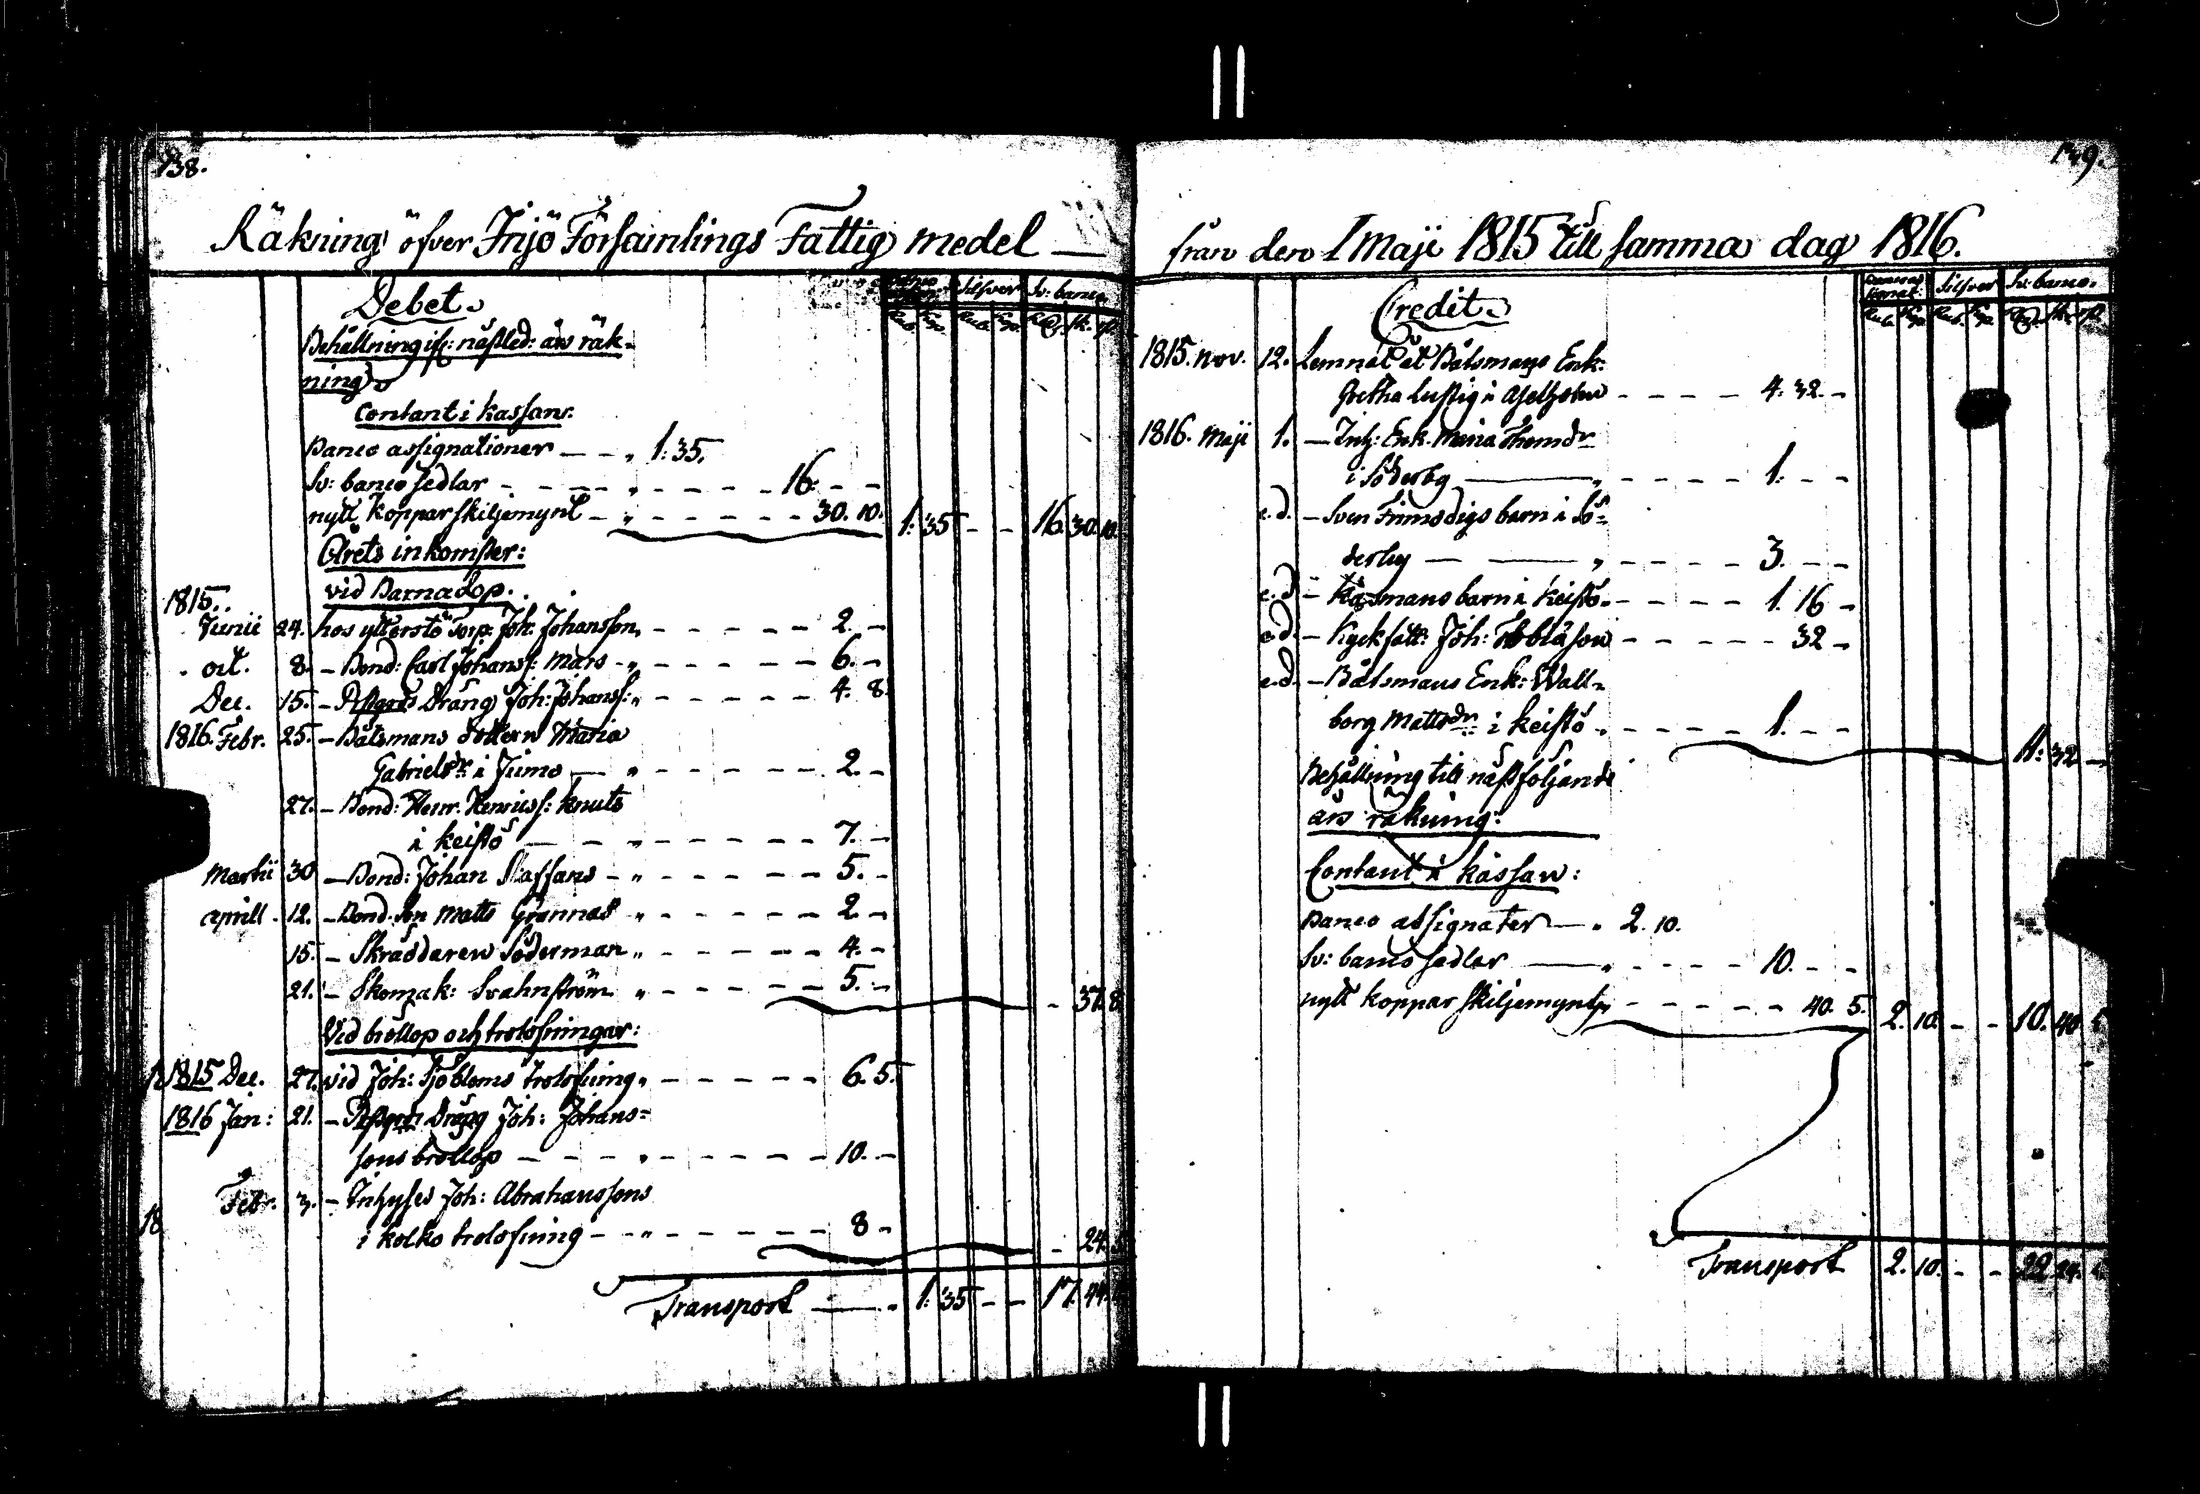 138.
Räkning öfver Iniö Församlings Fattig medel —
Debet.
Silfver Sv: banco
Rub. Kop. Rub. Kop. R.dr sk. rst.
Behållning ifr: nästled: års räk-
ning
Contant i kassan.
Banco assignationer — — „ 1: 35.
Sv: banco sedlar - - - - „ - - - - 16: - -
nytt kopparskiljemynt - „ - - - - - 30. 10. 1: 35 - - 16. 30. 10.
Årets inkomster:
vid Barnadop.
1815.
Junii 24. hos ytterstö Torp. Joh: Johansson, - - - - - 2. -
oct. 8. - Bond: Carl Johanss: Mårs - „ - - - - - 6. -
Dec. 15. - Dräng Joh: Johanss: „ - - - - 4. 8.
1816. Febr. 25. - Båtsmans dottern Maria
Gabrielsdr i Jumo — „ - - - - - 2. -
27. - Bond: Henr. Henrikss: Knuts
i Keistö - - - „ - - - - - 7. -
Martii 30 - Bond: Johan Staffans - „ - - - - - 5. -
aprill. 12. - Bond. son Matts Grännas „ - - - - - 2 -
15. - Skräddaren Söderman „ - - - - - 4. -
21. - Skomak: Svahnström „ - - - - - 5. - - 37. 8.
Vid bröllop och trolofningar:
1815 Dec. 27. vid Joh: Sjöbloms trolofning „ - - - - - 6. 5.
1816 Jan: 21. - Dräng Joh: Johans=
sons bröllop - - - „ - - - - - 10. -
Febr. 3. - Inhyses Joh: Abrahamssons
i kolko trolofning - - „ - - - - - 8 - - 24. 5.
Transport — „ 1: 35 - - 17. 44.
139.
från den 1 Maji 1815 till samma dag 1816.
Credit.
Silfver Sv: banco.
Rub. Kop. Rub. Kop. R.dr sk. rst.
1815. Nov. 12. Lemnat åt Båtsmans Enk:
Gretha Lustig i Åselholm - - - - 4. 32. -
1816. Maji 1. — Inh: Enk. Maria Thomdr
i Söderby — „ - - - - 1. - -
e.d. - Sven Finnsdigs barn i Sö=
derby — — „ - - - - 3. - -
e.d. - Kåsmans barn i Keistö. - - - - 1. 16 -
e.d. - Kyckfatt: Joh: Tobiason - - - - - 32 -
e.d. - Båtsmans Enk: Wall=
borg Mattsdr: i Keistö . - - - - 1. - - 11: 32 -
Behållning till nästföljande
års räkning:
Contant i kassan:
Banco assignater — „ 2. 10.
Sv: banco sedlar — „ - - - - 10. - -
nytt koppar skiljemynt „ - - - - - 40. 5. 2. 10. - - 10. 40 5
Transport 2. 10. - - 22 24. 5